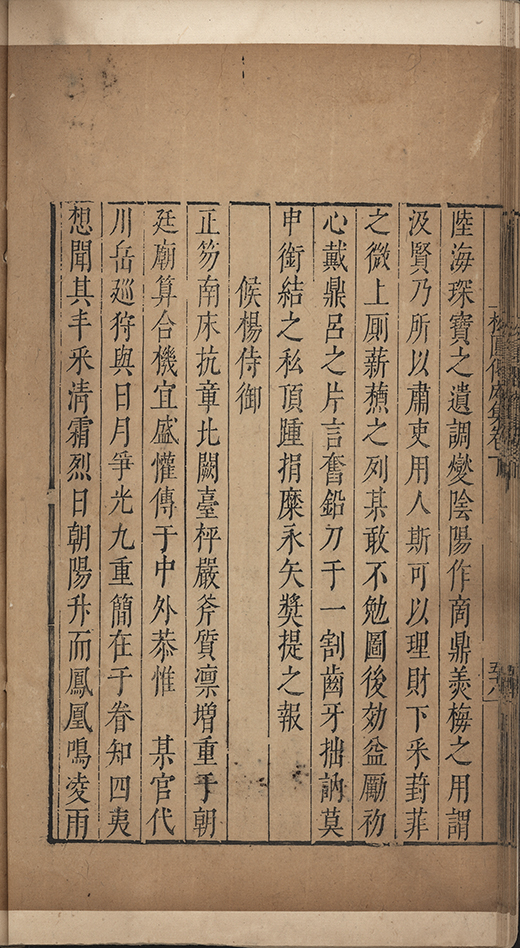 陸海琛寶之遺調燮陰陽作商鼎羹梅之用謂
汲賢乃所以肅吏用人斯可以理財下釆葑菲
之微上厠薪蕉之列某敢不勉圖後効益勵初
心戴鼎呂之片言奮鉛刀于一割齒牙拙訥莫
申銜結之私頂踵捐糜永矢奬提之報
候楊侍御
正笏南床抗章北闕臺枰嚴斧質凛增重乎朝
廷廟算合機宜盛懽傳于中外恭惟 某官代
川岳廵狩與日月爭光九重簡在于眷知四夷
想聞其丰釆淸霜烈日朝陽升而鳳凰鳴凌雨